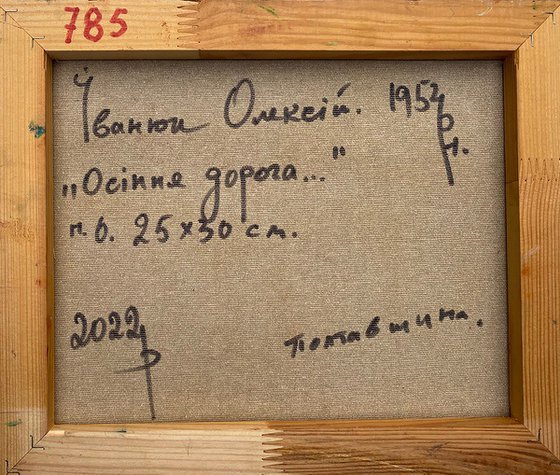 785
Іванюк Олексій. 1952 р. н.
„Осіння дорога..."
п. о. 25х30 см.
2022 р
Полтавщина.